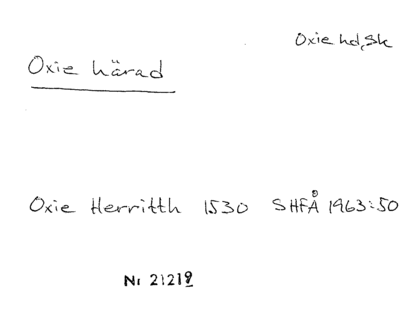 Oxie hd, Sk
Oxie härad
Oxie Herritth 1530 SHFÅ 1963:50
Nr 21219